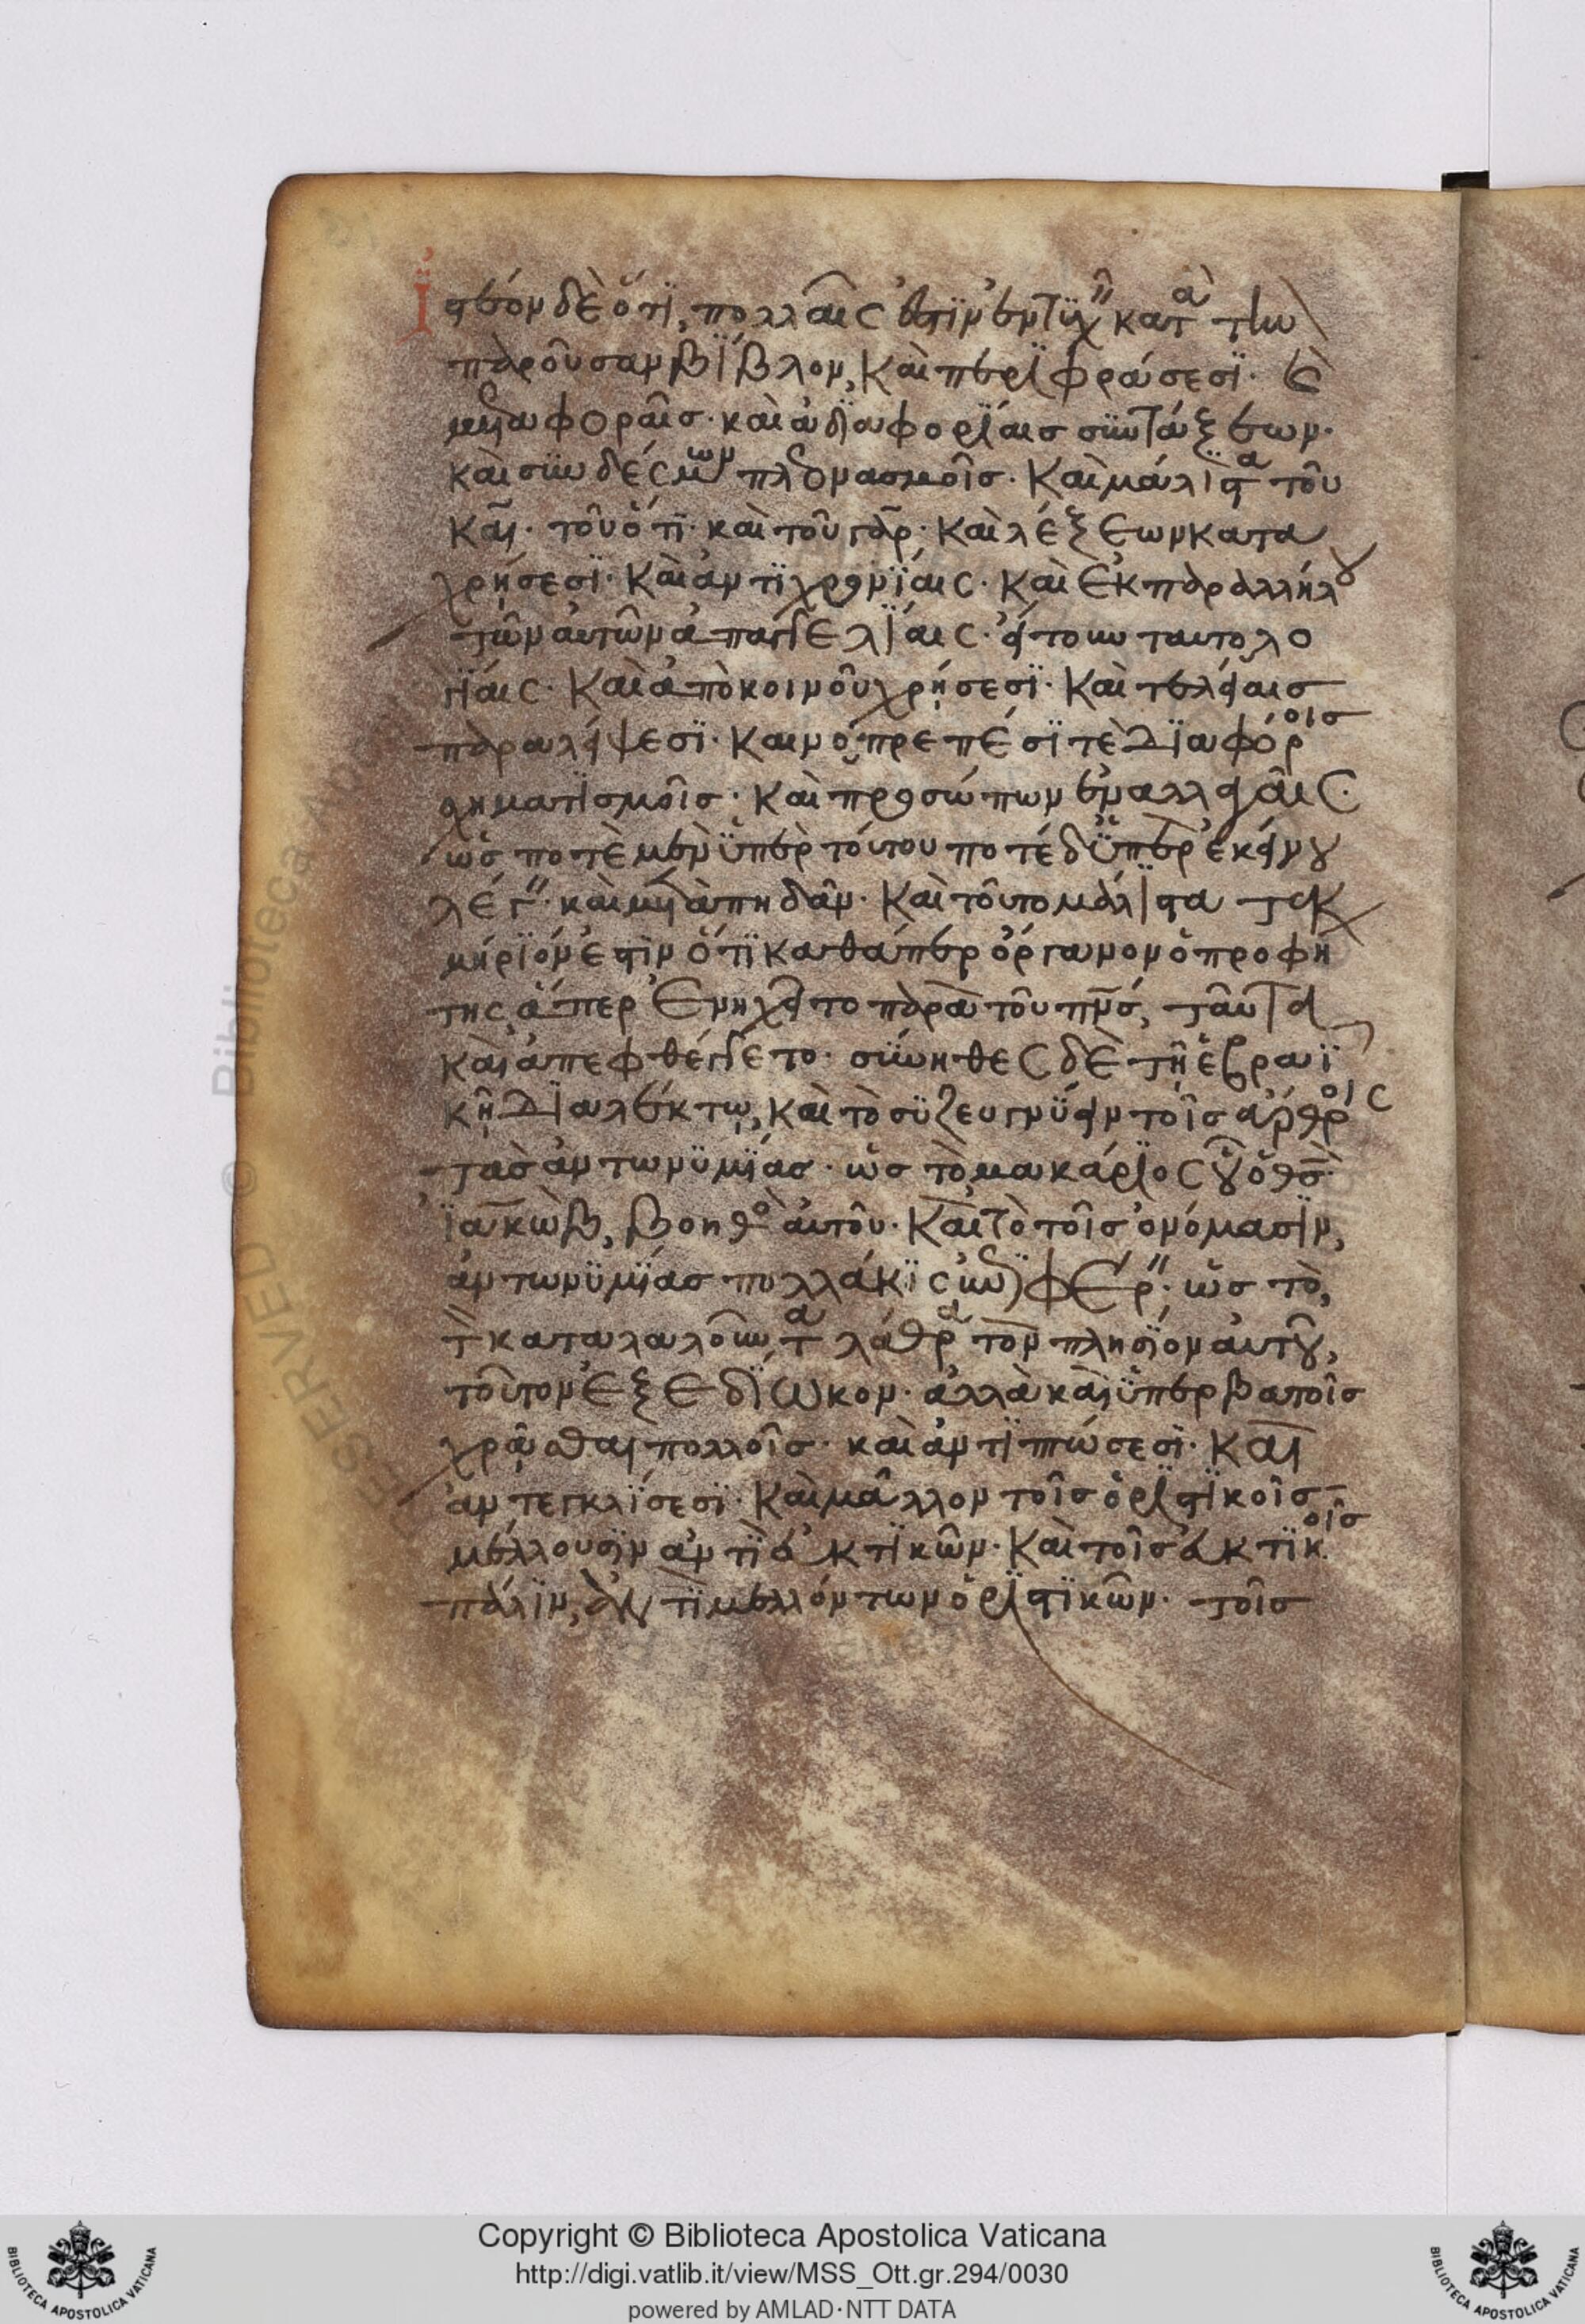 Ἰστέον δὲ ὅτι, πολλαῖς ἐστὶν ἐντυχ κατὰ τὴν
παροῦσαν βίβλον, καὶ περιφράσεσι· καὶ
μεταφοραῖς· καὶ ἀδιαφορίαις συντάξεων·
καὶ συνδέσμων πλεονασμοῖς· καὶ μάλιστα τοῦ
καί· τοῦ ὅτι· καὶ τοῦ γάρ· καὶ λέξεων κατα
χρήσεσι· καὶ ἀντιχρονίαις· καὶ ἐκ παραλλήλου
τῶν αὐτῶν ἀπαγγελίαις· ἤγουν ταυτολο
γίαις· καὶ ἀπὸ κοινοῦ χρήσεσι· καὶ
παραλήψεσι· καινοπρεπέσι τὲ διαφόροις
σχηματισμοῖς· καὶ προσώπων ἐναλλαγαῖς·
ὡς ποτὲ μὲν ὑπὲρ τούτου ποτὲ δ' ὑπὲρ ἐκείνου
λέγ καὶ μεταπηδᾶν· καὶ τοῦτο μάλιστα τεκ
μήριόν ἐστιν ὅτι καθάπερ ὄργανον ὁ προφή
της, ἅπερ ἐνηχεῖτο παρὰ τοῦ πνς, ταῦτα
καὶ ἀπεφθέγγετο· σύνηθες δὲ τῇ ἑβραϊ
κῇ διαλέκτῳ, καὶ τὸ συζευγνύειν τοῖς ἄρθροις
τὰς ἀντωνυμίας· ὡς τὸ μακάριος οὗ ὁ θς
ἰακὼβ, βοηθὸς αὐτοῦ· καὶ τὸ τοῖς ὀνόμασιν,
ἀντωνυμίας πολλάκις φέρ· ὡς τὸ,
τὸν καταλαλοῦντα λάθρα τὸν πλησίον αὐτοῦ,
τοῦτον ἐξεδίωκον· ἀλλὰ καὶ ὑπερβατοῖς
χρᾶσθαι πολλοῖς· καὶ ἀντιπτώσεσι· καὶ
ἀντεγκλίσεσι· καὶ μᾶλλον τοῖς ὁριστικοῖς
μέλλουσιν ἀντὶ εὐκτικῶν· καὶ τοῖς εὐκτικοῖς
πάλιν, ἀντὶ μελλόντων ὁριστικῶν· τοῖς
Copyright © Biblioteca Apostolica Vaticana
http://digi.vatlib.it/view/MSS_Ott.gr.294/0030
powered by AMLAD·NTT DATA